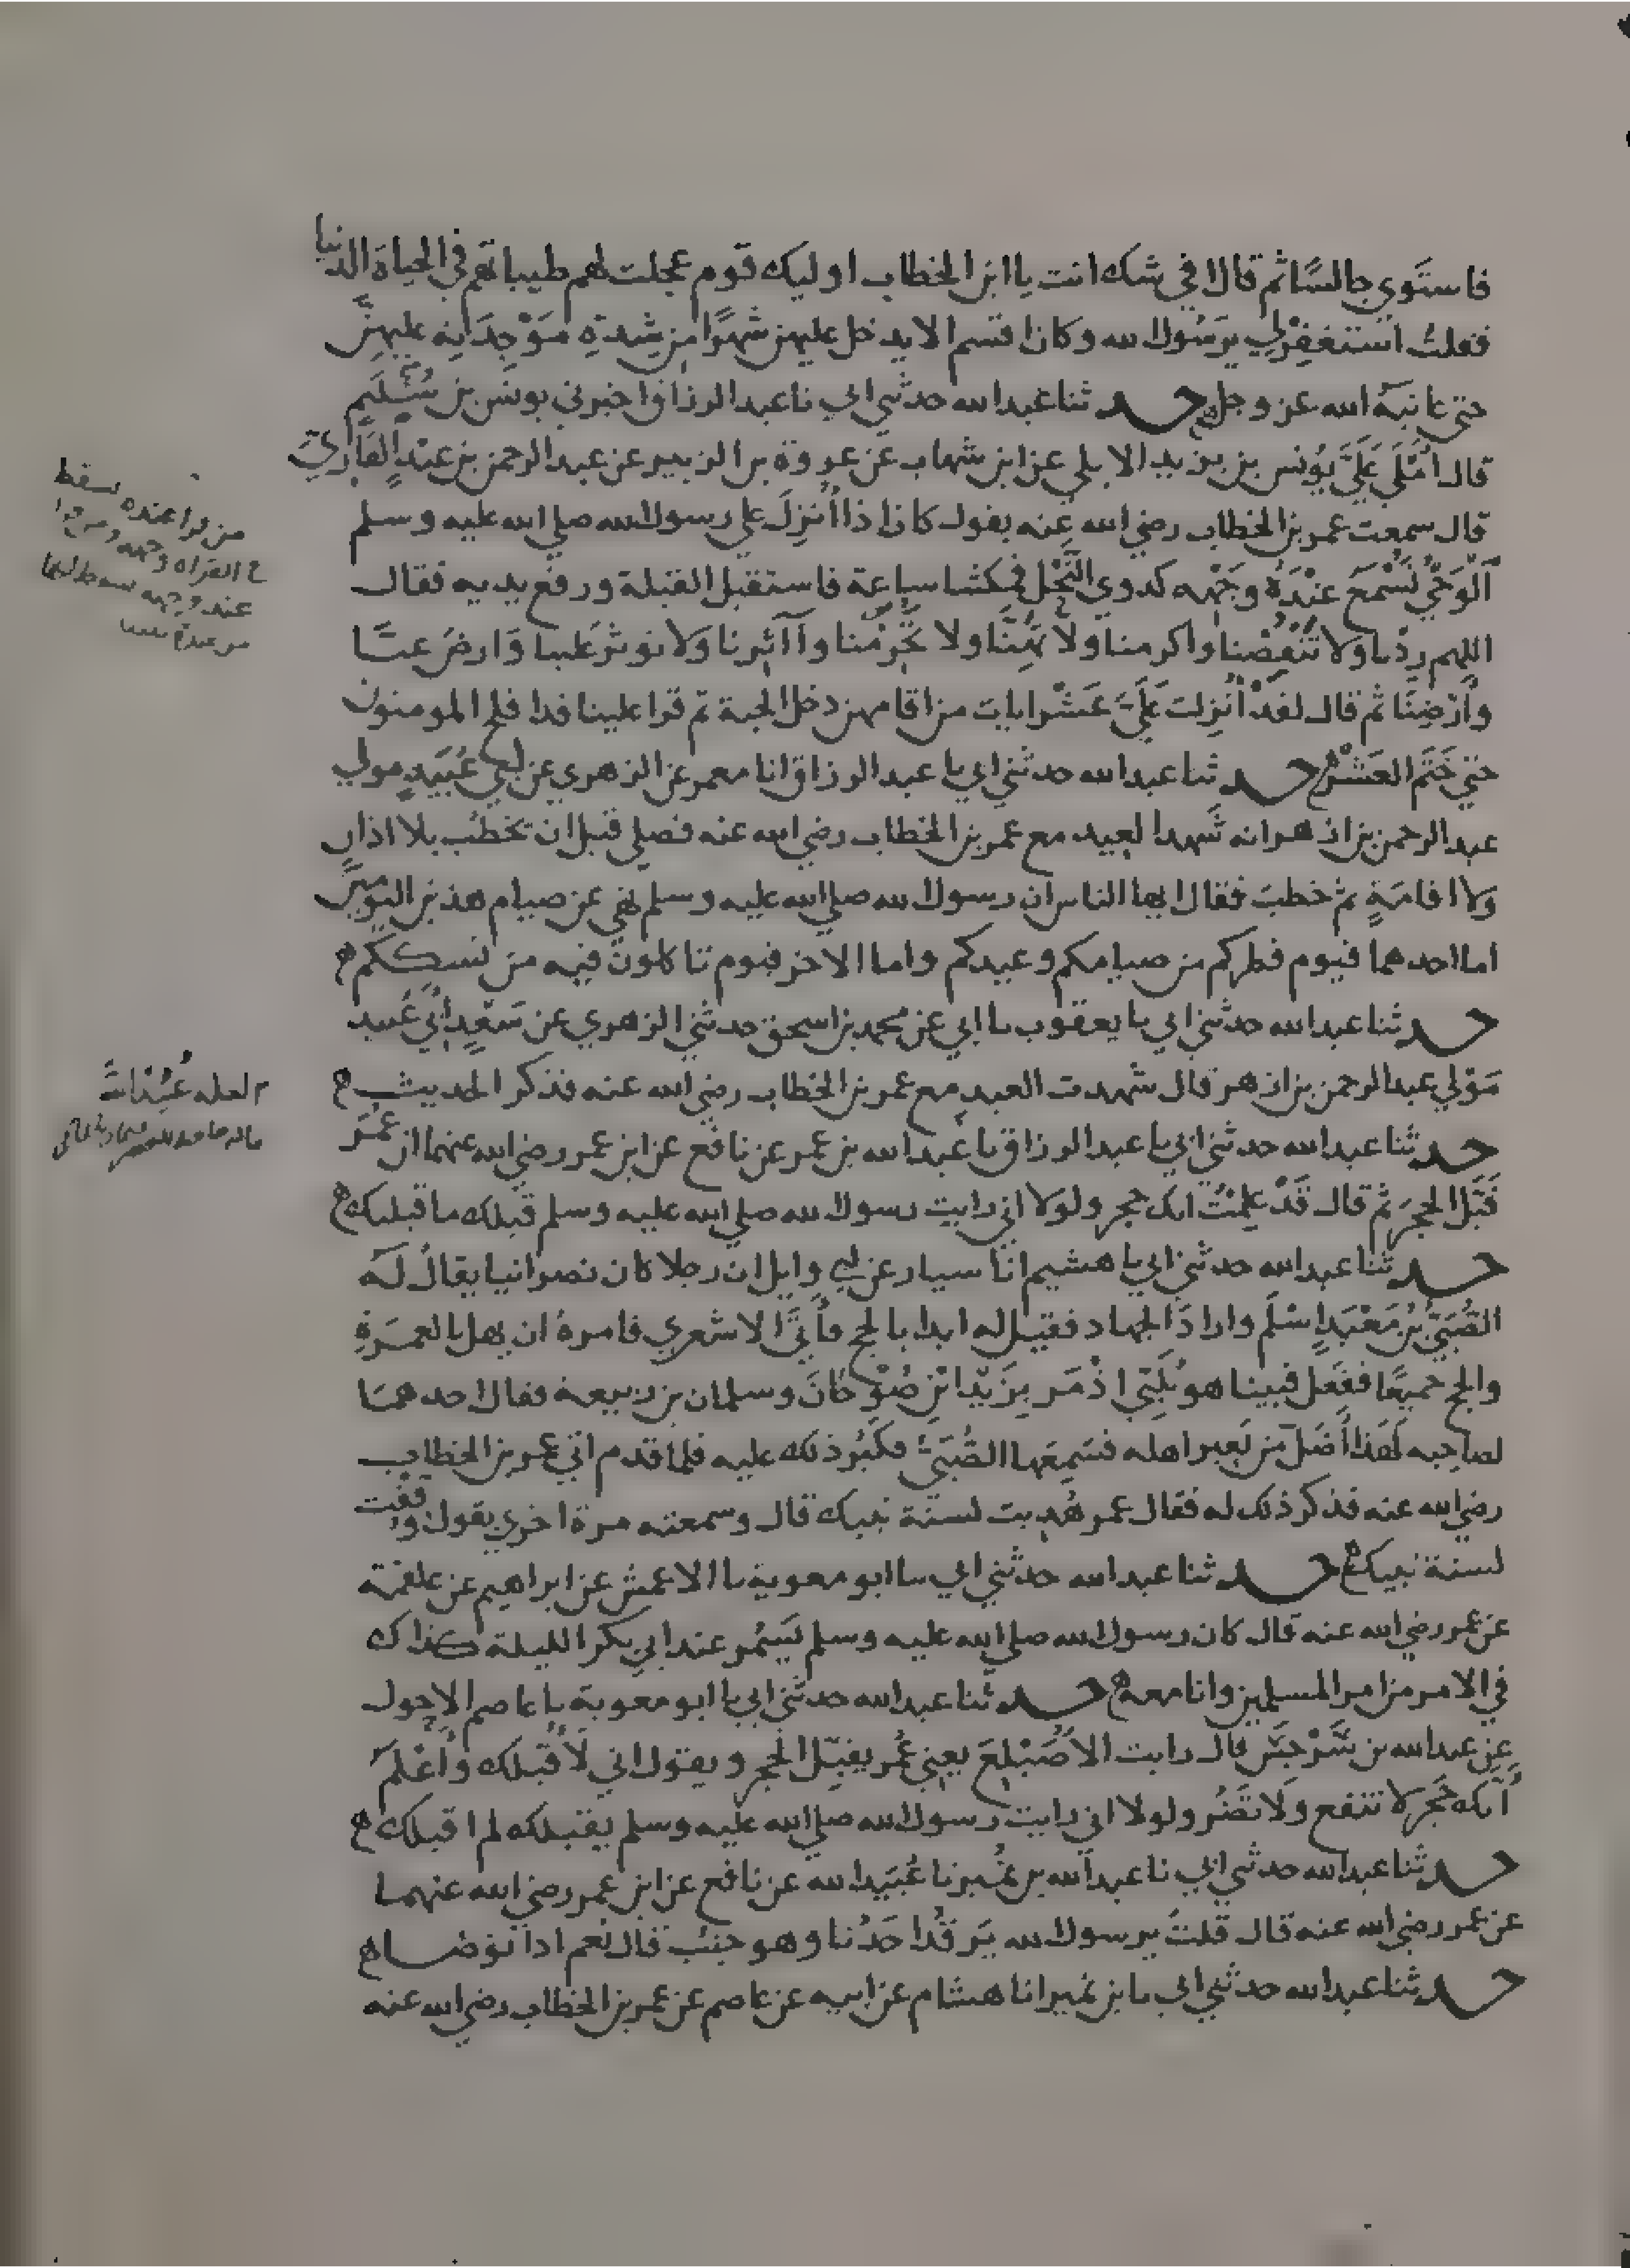 فاستوي جالسًا ثم قال افي شك انت يا ابن الخطاب اوليك قوم عجلت لهم طيباتهم في الحياة الدنيا
فقلت استغفر لي يرسول الله وكان اقسم الا يدخل عليهن شهرًا من شدة موجدته عليهن
حتي عاتبه الله عز وجل ه حدثنا عبد الله حدثني ابي نا عبد الرزاق اخبرني يونس بن سُلَيم
قال امْلَي عَلَيَّ يُونس بن يزيد الايلي عن ابن شهاب عن عروة بن الزبير عن عبد الرحمن بن عبْدٍ القَارِيّ
قال سمعت عمر بن الخطاب رضي الله عنه يقول كان اذا أُنزِلَ علي رسول الله صلي الله عليه وسلم
الوَحْيُ يُسْمَعَ عنْدَهُ وَجْهِه كدوي النَّحْل فمكثنا ساعة فاستقبل القبلة ورفع يديه فقال
اللهم زدْنا ولا تَنْقُصْنا واكرمنا ولا تُهِنَّا ولا تَحْرِمْنا وآثِرنا ولا توثر علينا وارضَ عنَّا
وأرْضِنَا ثم قال لقدْ أُنزلت عَلَيَّ عَشْر ايات من اقامهن دخل الجنة ثم قرا علينا قد افلح المومنون
حتي خَتَم العَشْرَ ه حدثنا عبد الله حدثني ابي نا عبد الرزاق انا معمر عن الزهري عن ابي عُبَيدٍ مولي
عبد الرحمن بن ازهر انه شَهدا لعيد مع عمر بن الخطاب رضي الله عنه فصلي قبل ان يخطب بلا اذان
ولا اقامَةٍ ثم خطبَ فقال ايها الناس ان رسول الله صلي الله عليه وسلم نهي عن صيام هذين اليومين
اما احدهما فيوم فطركم من صيامكم وعيدكم واما الاخر فيوم تاكلون فيه من نسككم ه
حدثنا عبد الله حدثني ابي نا يعقوب نا ابي عن محمد بن اسحق حدثني الزهري عن سَعْدٍ أبي عُبيد
مَوْلي عبد الرحمن بن ازهر قال شهدت العيد مع عمر بن الخطاب رضي الله عنه فذكر الحديث ه
حدثنا عبد الله حدثني ابي نا عبد الرزاق نا عبد الله بن عمر عن نافع عن ابن عمر رضي الله عنهما ان عمرَ
قَبَّل الحجرَ ثم قال قَدْ عِلمْتُ انك حجر ولولا اني رايت رسول الله صلي الله عليه وسلم قبلك ما قبلتك ه
حدثنا عبد الله حدثني ابي نا هشيم انا سيار عن ابي وايل ان رجلا كان نصرانيا يقالُ لَه
الصُّبَيُّ بْنُ مَعْبَدٍ اسْلَم وارادَ الجهاد فقيل له ابدا بالحج فأتَي الاشعري فامرهُ ان يهل بالعمرَةِ
والحج جميعًا ففعل فبينا هو يُلَبّي اذْ مَر بِزَيْدا بْن صُوْحَانَ وسلمان بن ربيعة فقال احدهما
لصاحبه لَهذا أَضَلّ من بَعير اهله فسَمِعَها الصُّبَيّ فكبُرَ ذلك عليه فلما قدم اتي عمر بن الخطاب
رضي الله عنه فذكر ذلك له فقال عمر هُديت لسنة نبيك قال وسمعته مرة اخري يقول وفقت
لسنة نبيك ه حدثنا عبد الله حدثني ابي نا ابو معوية نا الاعمش عن ابراهيم عن علقمة
عن عمر رضي الله عنه قال كان رسول الله صلي الله عليه وسلم يَسْمُر عند ابي بكر الليلة كذاك
في الامر من امر المسلمين وانا معه ه حدثنا عبد الله حدثني ابي نا ابو معوية نا عاصم الاحول
عن عبد الله بن سَرْجِسَ قال رايت الاُصَيْلِعَ يعني عُمر يقبّل الحجر ويقول اني لأُقبّلك وأعْلَم
أنك حَجَر لا تنفع ولا تضُر ولولا اني رايت رسول الله صلي الله عليه وسلم يقبلك لم اقبلك ه
حدثنا عبد الله حدثني ابي نا عبد الله بن نُمير نا عُبَيد الله عن نافع عن ابن عمر رضي الله عنهما
عن عمر رضي الله عنه قال قلت يرسول الله يَرْقُد احَدُنا وهو جنب قال نعم اذا توضا ه
حدثنا عبد الله حدثني ابي نا بن نمير انا هشام عن ابيه عن عاصم عن عمر بن الخطاب رضي الله عنه
لعله عُبَيْد الله